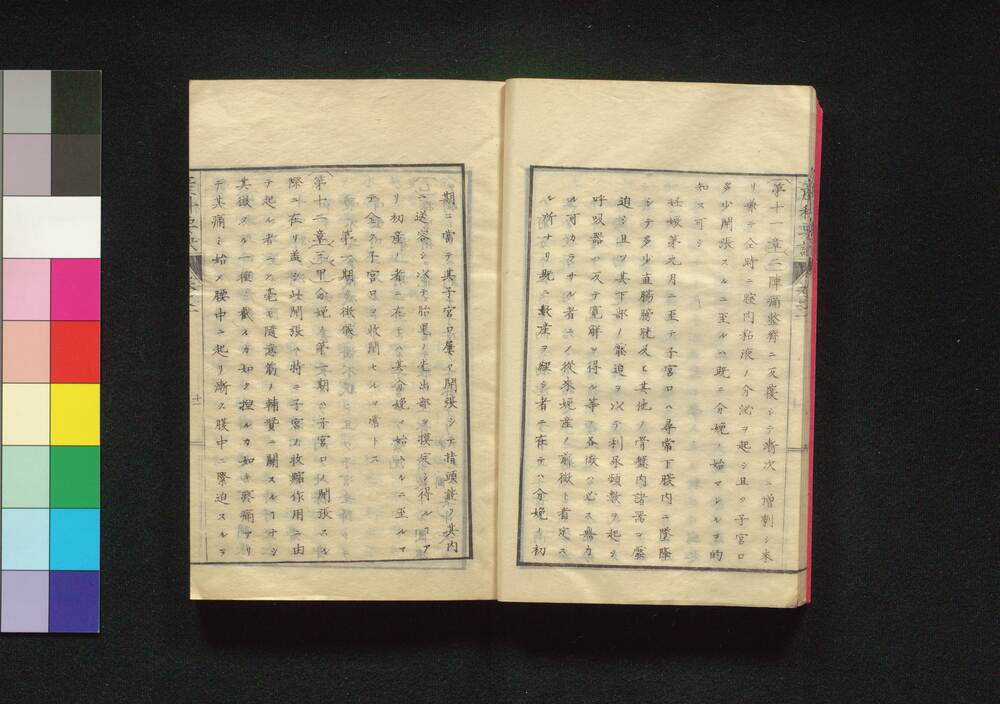 (第十一章)二陣痛整齊ニ反覆シテ漸次ニ增劇シ來
リ兼テ全時ニ腟内粘液ノ分泌ヲ起シ且ツ子宮口
多少開張スルニ至ルハ既ニ分娩ノ始マンルヲ的
知ス可シ
妊娠第九月ニ至テ子宮口ハ尋常下腹内ニ墜降
シテ多少直腸膀胱及ヒ其他ノ骨盤内諸器ヲ窘
迫シ且ツ其下部ノ窘迫ヲ以テ利尿頻數ヲ起シ
呼吸器ハ反テ寛解ヲ得ル等ノ各徴ハ必ス
ル可カラサル者ニノ從來娩産ノ前徴ト者定ス
ル所ナリ既ニ數産ヲ線シ者ニ在テハ分娩ノ初
期ニ當テ其子宮口屢々開張シテ指頭能ク其内
ニ送容シ以テ胎兒ノ先出部ヲ摸定シ得ルヿア
リ初産ノ者ニ在テハ其分娩ノ始ルニ至ルマ
テ全ク子宮口ヲ收閉セルヲ常トス
第一期徴候
(第十二章)分娩ノ第一期ハ子宮口ノ開張スル
際ニ在リ蓋シ此開張ハ特モ子宮ノ收縮作用ニ由
テ起ル者ニノ毫モ隨意筋ノ輔賛ニ關スルナシ
其徴スル一種ノ截スカ如ク捏ルカ如キ疼痛アリ
テ其痛ミ始メ腰中ニ起リ漸ク腹中ニ緊迫スルヿ